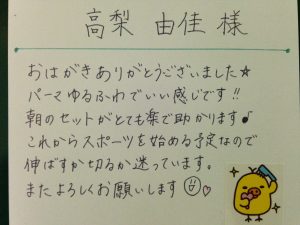 高梨 由佳 様
おはがきありがとうございました☆
パーマゆるふわでいい感じです!!
朝のセットがとても楽で助かります♪
これからスポーツを始める予定なので
伸ばすか切るか迷っています。
またよろしくお願いします☺♡